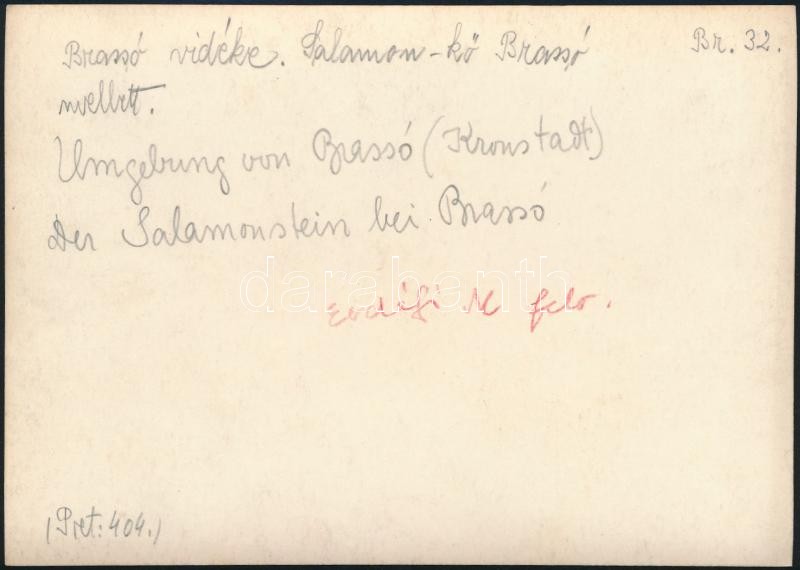 Brassó vidéke. Salamon-kő Brassó
mellett.
Br. 32.
Umgebung von Brassó (Kronstadt)
Der Salamonstein bei Brassó
darabanth
Erdélyi M felv.
(Pret: 404.)